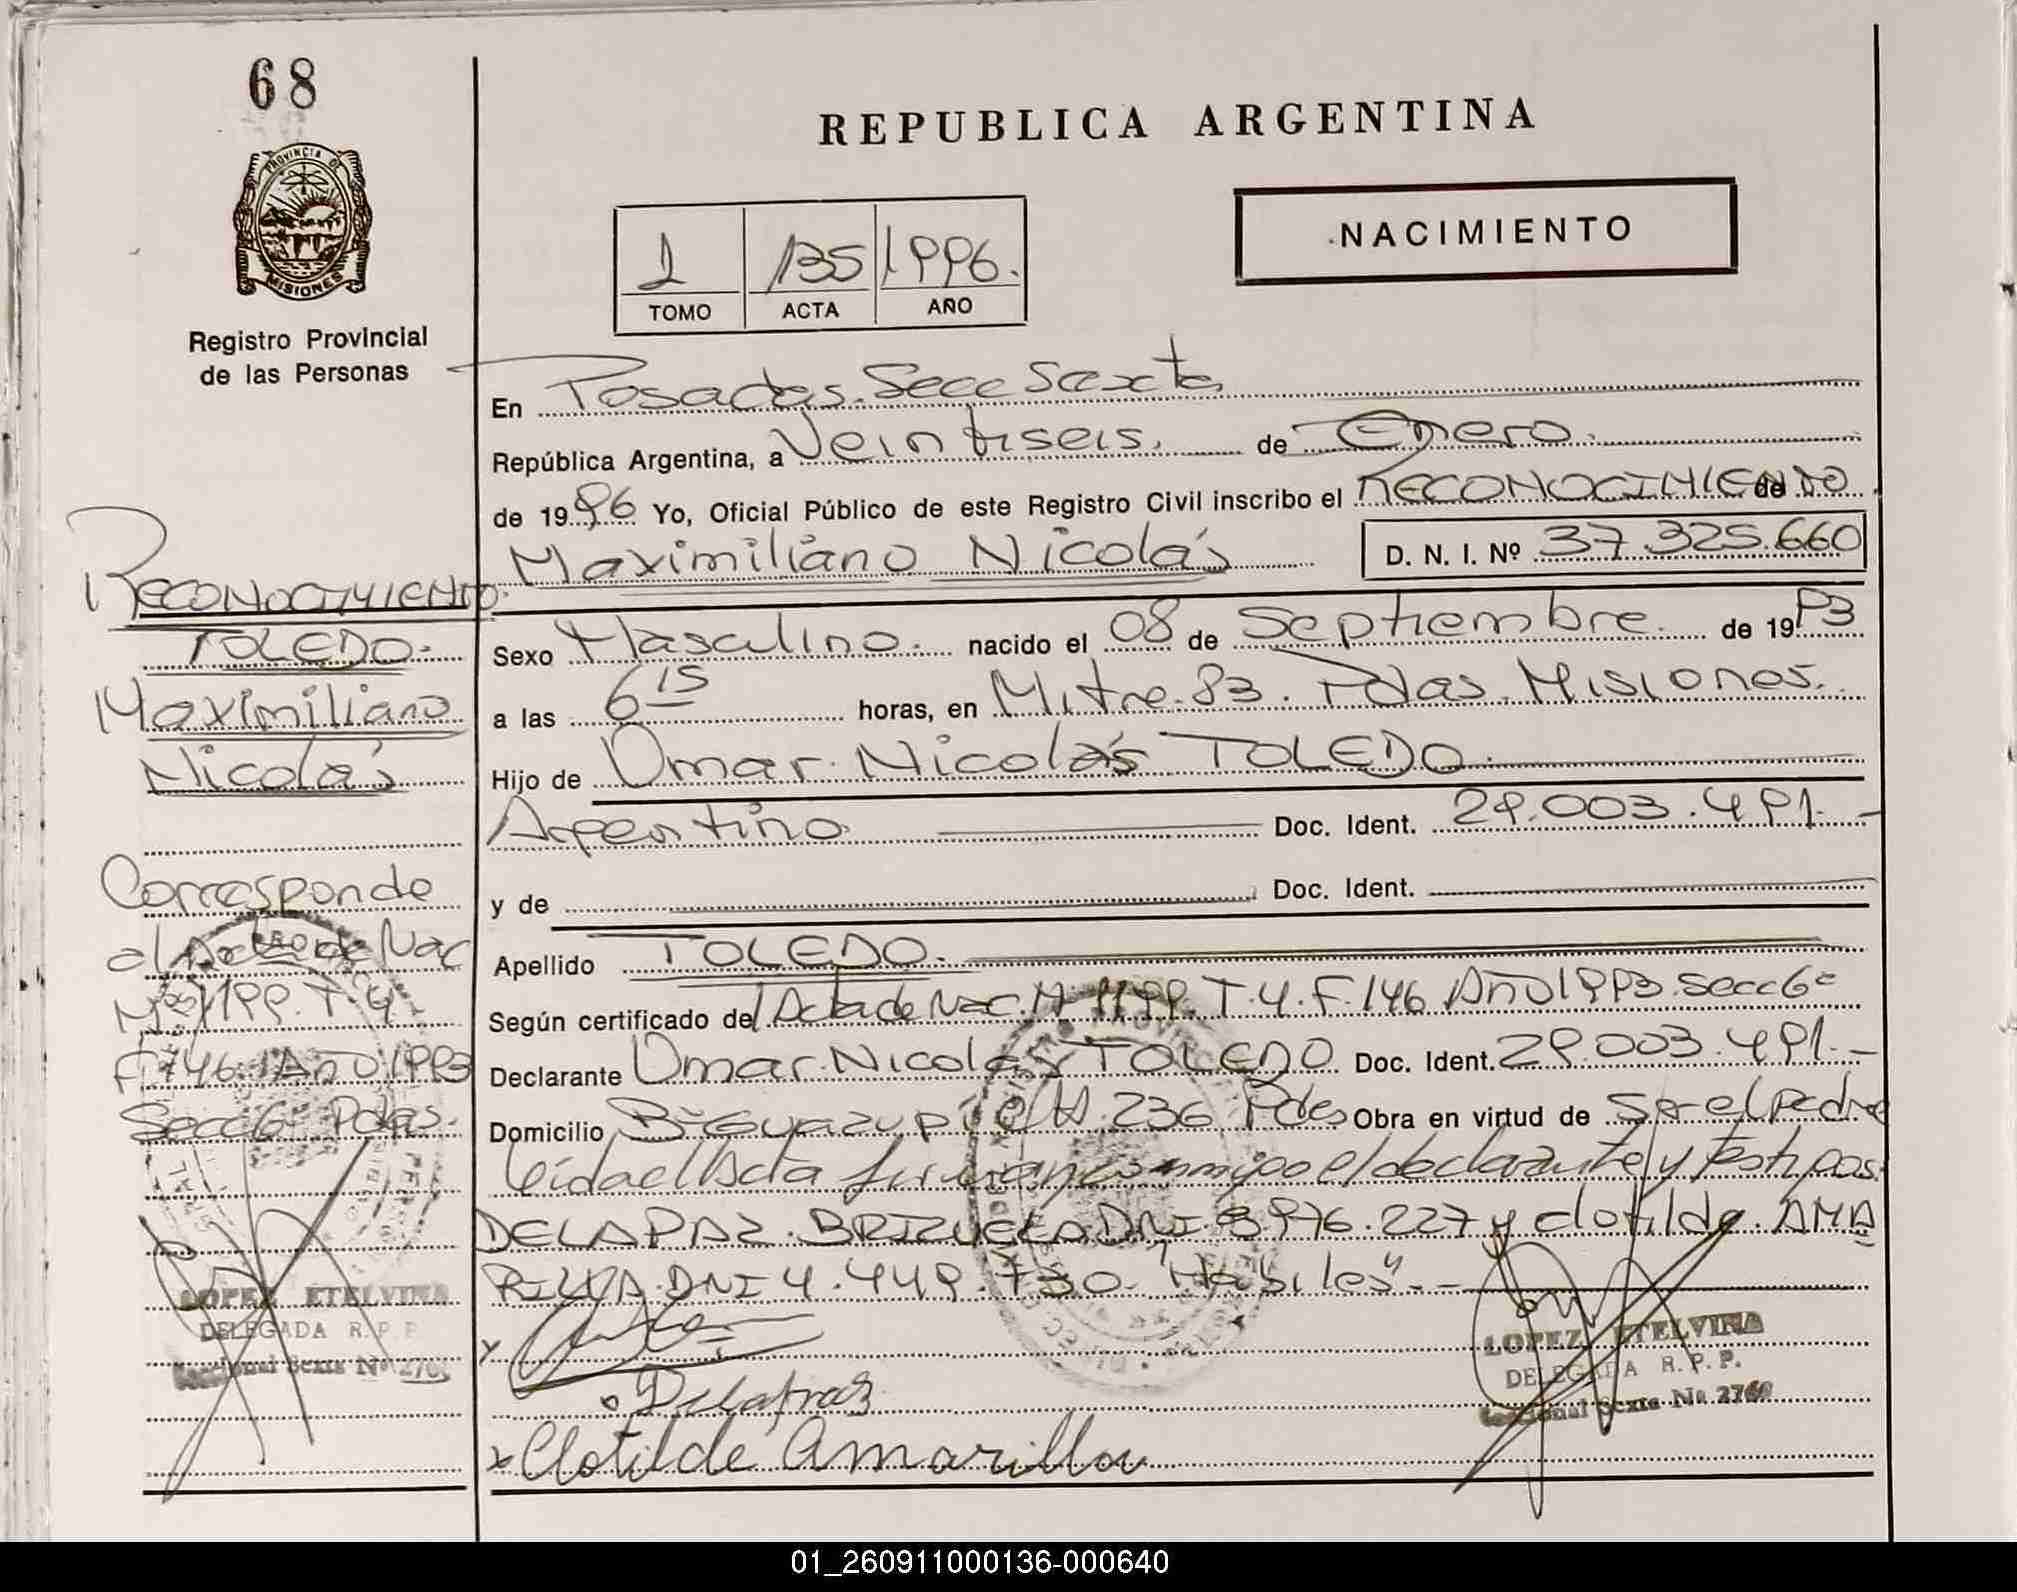 68
PROVINCIA DE
MISIONES
Registro Provincial
de las Personas
REPUBLICA ARGENTINA
NACIMIENTO
1 135 1996.
TOMO ACTA AÑO
En Posadas. Secc Sexta
República Argentina, a Veintiseis. de Enero.
de 1996 Yo, Oficial Público de este Registro Civil inscribo el RECONOCIMIENTO de
Maximiliano Nicolás D. N. I. Nº 37.325.660
Sexo Masculino. nacido el 08 de Septiembre. de 1993
a las 6 15 horas, en Mitre. 83. Pdas. Misiones.
Hijo de Omar. Nicolás TOLEDO.
Argentino. Doc. Ident. 29.003.491.-
y de Doc. Ident.
Apellido TOLEDO.
Según certificado del Acta de Nac. Nº 1199. T. 4. F. 146. Año 1993. Secc 6ª
Declarante Omar. Nicolás TOLEDO Doc. Ident. 29.003.491.-
Domicilio Bº Guazupí 236 Pdas Obra en virtud de Ser el padre
leída el Acta firman conmigo el declarante y testigos.
DELAPAZ. BRIZUELA DNI. 3.976.227 y clotilde. AMA
RILLA. DNI 4.449.730. "Habiles".-
Delapaz
Clotilde Amarilla
LOPEZ ETELVINA
DELEGADA R. P. P.
Seccional Sexta No 2760
RECONOCIMIENTO.
TOLEDO.
Maximiliano
Nicolás
Corresponde
al Acta de Nac
Nº 1199. T. 4
F. 146. Año 1993
Secc 6ª Pdas.
LOPEZ ETELVINA
DELEGADA R. P. P.
Seccional Sexta Nº 2760
01_260911000136-000640